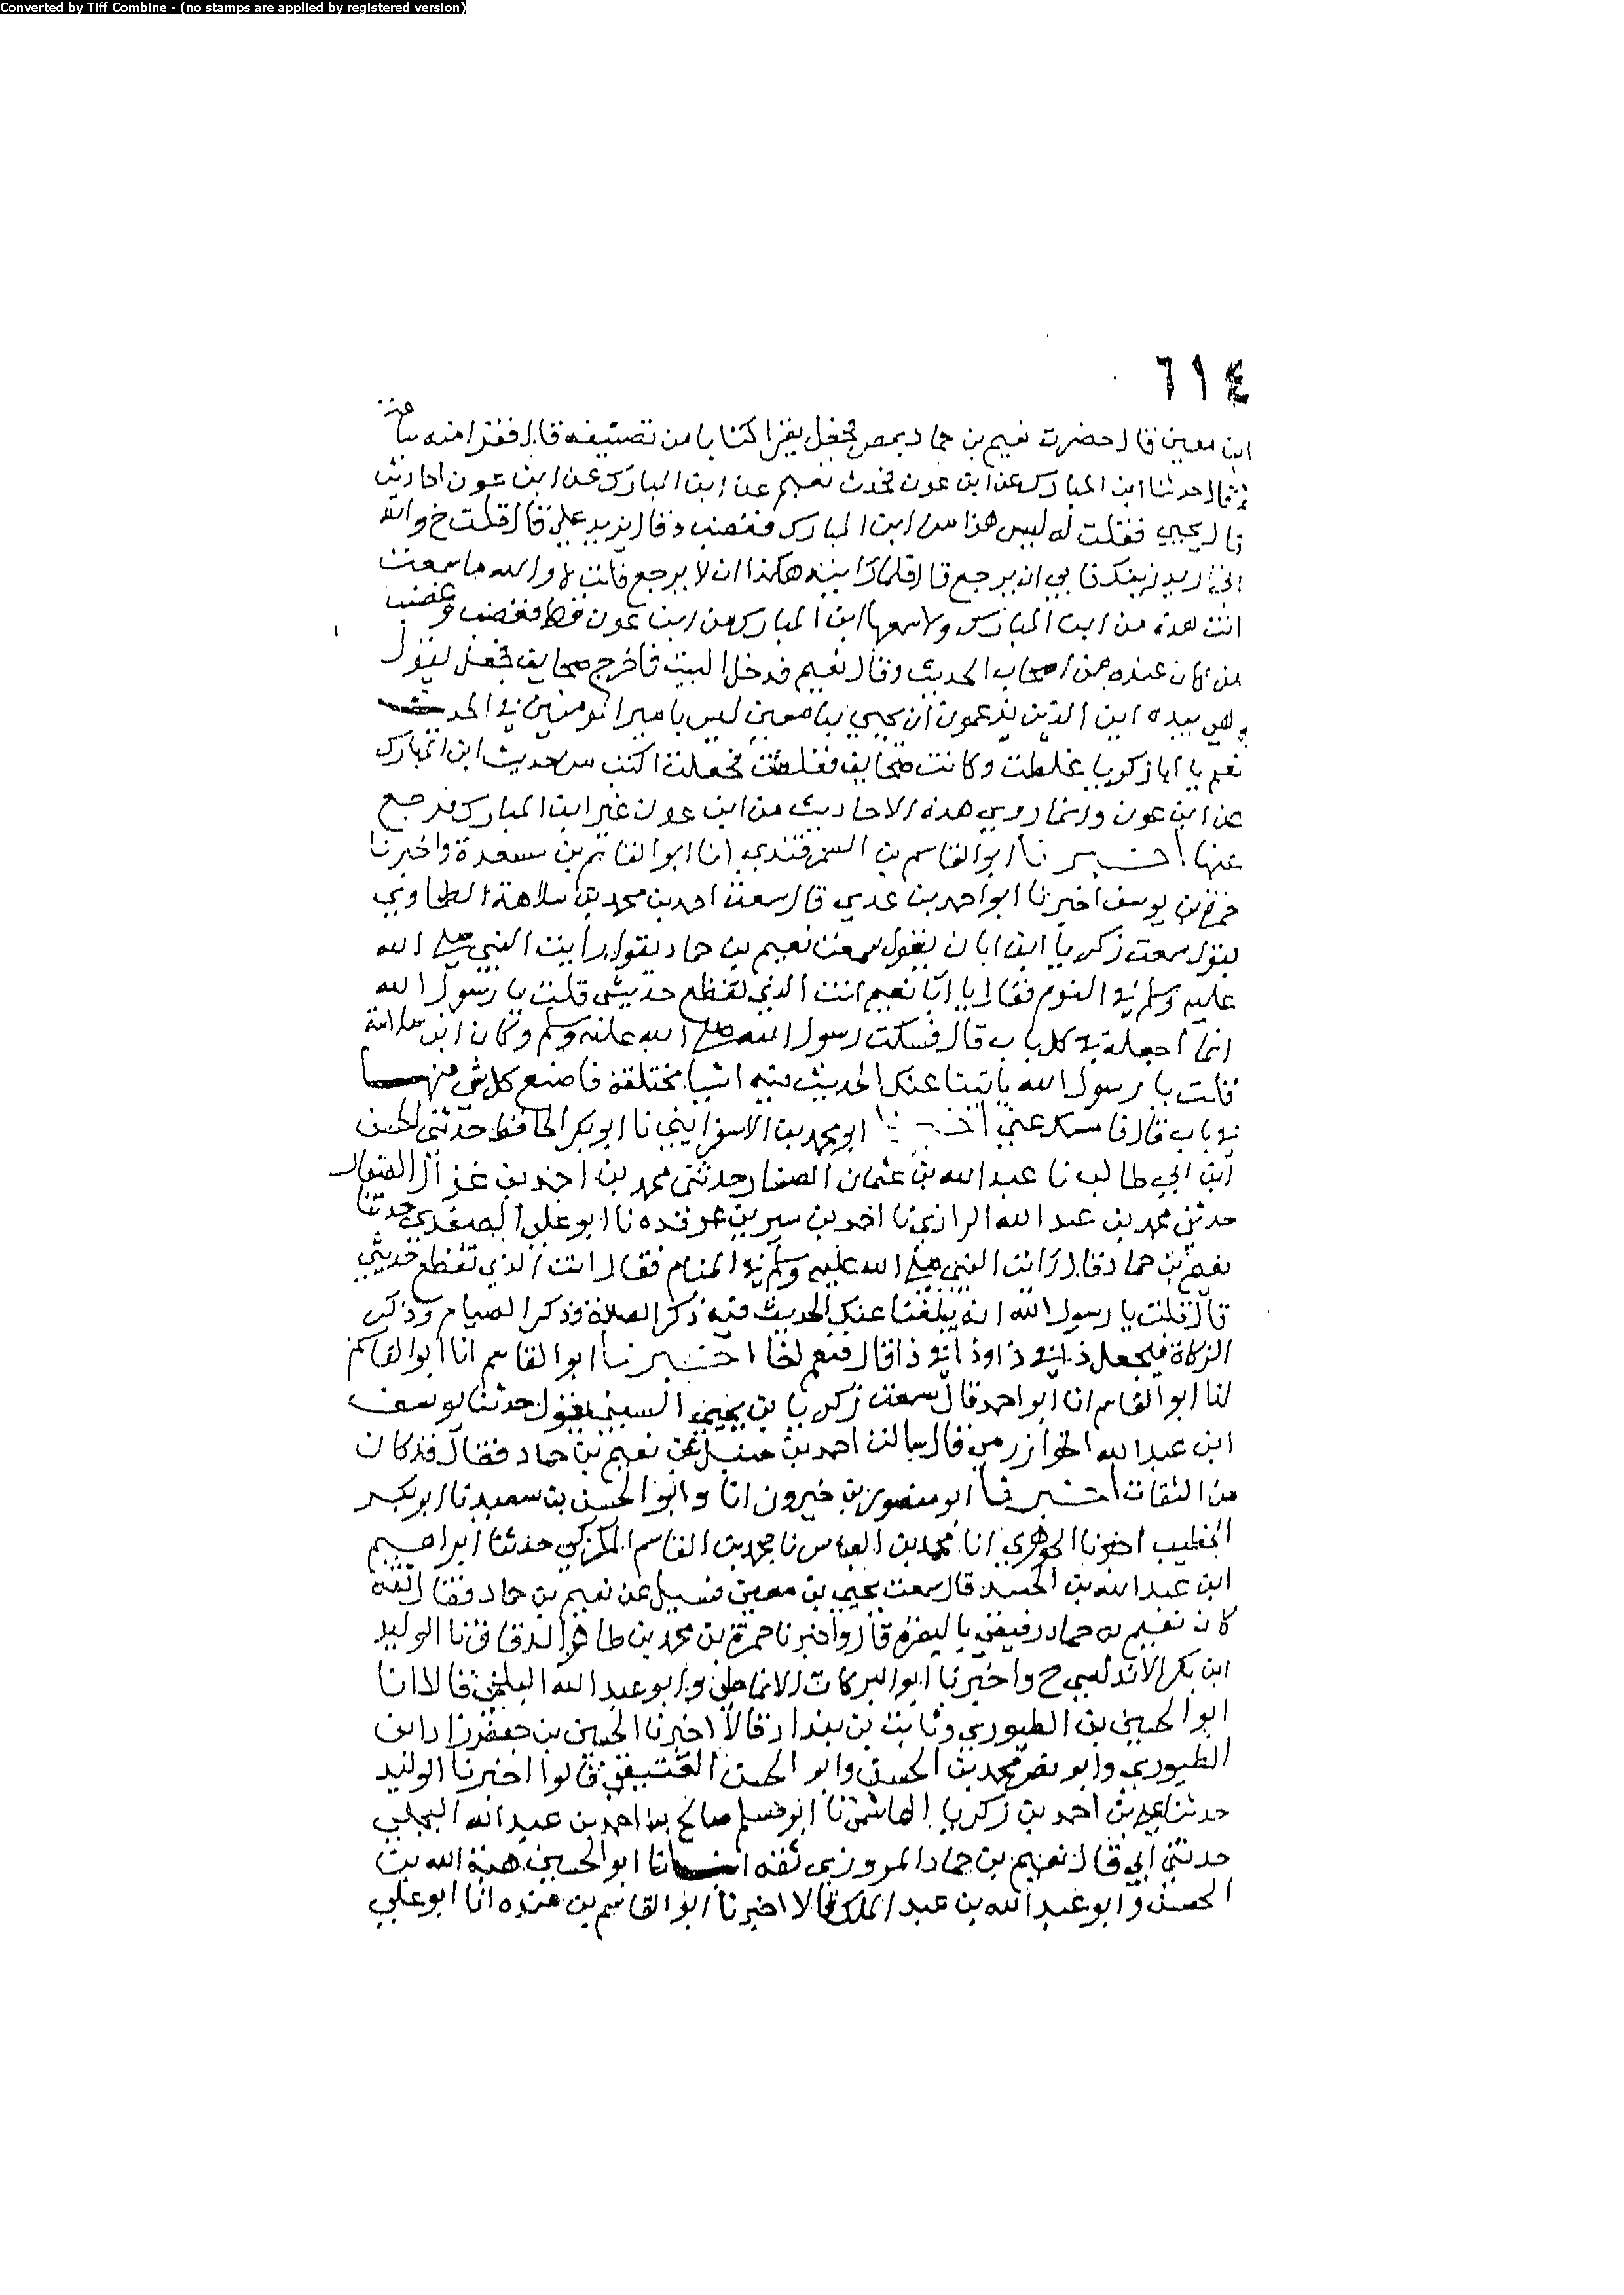 Converted by Tiff Combine - (no stamps are applied by registered version)
٦١٤
ابن معين قال حضرت نعيم بن حماد بمصر فجعل يقرا كتابا من تصنيفه قال فقرا منه ساعة
ثم قال حدثنا ابن المبارك عن ابن عون فحدث نعيم عن ابن المبارك عن ابن عون احاديث
قال يحيى فقلت له ليس هذا من ابن المبارك فغضب وقال يزيد علي قال قلت والله
اريد زينك فابى ان يرجع قال فلما رايته هكذا ان لا يرجع قلت لا والله ما سمعت
انت هذه من ابن المبارك ولا سمعها ابن المبارك من ابن عون قط فغضب وغضب
من كان عنده من اصحاب الحديث وقال نعيم فدخل البيت فاخرج صحايف فجعل يقول
وهي بيده اين الذين يزعمون ان يحيى بن معين ليس بامير المومنين في الحديث
نعم يا ابا زكريا غلطت وكانت صحايف فغلطت فجعلت اكتب من حديث ابن المبارك
عن ابن عون وانما روى هذه الاحاديث من ابن عون غير ابن المبارك فرجع
عنها اخبرنا ابو القاسم بن السمرقندي انا ابو القاسم بن مسعدة واخبرنا
حمزة بن يوسف اخبرنا ابو احمد بن عدي قال سمعت احمد بن محمد بن سلامة الطحاوي
يقول سمعت زكريا ابن ابان يقول سمعت نعيم بن حماد يقول رايت النبي صلى الله
عليه وسلم في النوم فقال يا ابا نعيم انت الذي تقطع حديثي قلت يا رسول الله
انما اجعله في كل باب قال فسكت رسول الله صلى الله عليه وسلم وكان ابن سلامة
قلت يا رسول الله ياتينا عنك الحديث فيه اشيا مختلفة فاصنع كل شي منها
في باب قال فامسك عني اخبرنا ابو محمد بن الاسفرايني نا ابو بكر الحافظ حدثني الحسن
ابن ابي طالب نا عبد الله بن عثمان الصفار حدثني محمد بن احمد بن
حدثني محمد بن عبد الله الرازي نا احمد بن نا ابو علي حدثنا
نعيم بن حماد قال رايت النبي صلى الله عليه وسلم في المنام فقال انت الذي تقطع حديثي
قال قلت يا رسول الله انه يبلغنا عنك الحديث فيه ذكر الصلاة وذكر الصيام وذكر
الزكاة فيجعل ذا في ذا وذا في ذا قال فنعم اخبرنا ابو القاسم انا ابو القاسم
انا ابو القاسم انا ابو احمد قال سمعت زكريا بن يحيى البستي يقول حدثنا يوسف
ابن عبد الله الخوارزمي قال سالت احمد بن حنبل عن نعيم بن حماد فقال قد كان
من الثقات اخبرنا ابو منصور بن خيرون انا وابو الحسن بن سعيد نا ابو بكر
الخطيب اخبرنا الجوهري انا محمد بن العباس نا محمد بن القاسم الكوكبي حدثنا ابراهيم
ابن عبد الله بن الجنيد قال سمعت يحيى بن معين وسيل عن نعيم بن حماد فقال ثقة
كان نعيم بن حماد رفيقي بالبصرة قال واخبرنا حمزة بن محمد بن طاهر الدقاق نا الوليد
ابن بكر الاندلسي ح واخبرنا ابو البركات الانماطي وابو عبد الله البلخي قالا انا
ابو الحسين بن الطيوري وثابت بن بندار قالا اخبرنا الحسين بن جعفر زاد ابن
الطيوري وابو نصر محمد بن الحسن وابو الحسن العتيقي قالوا اخبرنا الوليد
حدثنا علي بن احمد بن زكريا الهاشمي نا ابو مسلم صالح بن احمد بن عبد الله العجلي
حدثني ابي قال نعيم بن حماد المروزي ثقة انبانا ابو الحسين هبة الله بن
الحسن وابو عبد الله بن عبد الملك قالا اخبرنا ابو القاسم بن منده انا ابو علي